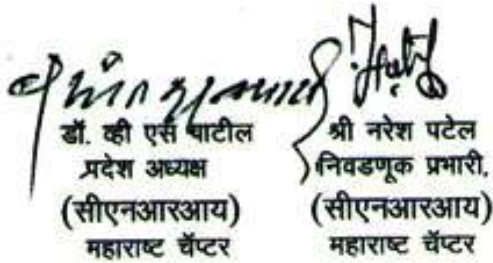 डॉ. व्ही एस पाटील
प्रदेश अध्यक्ष
(सीएनआरआय)
महाराष्ट चॅप्टर
श्री नरेश पटेल
निवडणूक प्रभारी,
(सीएनआरआय)
महाराष्ट चॅप्टर